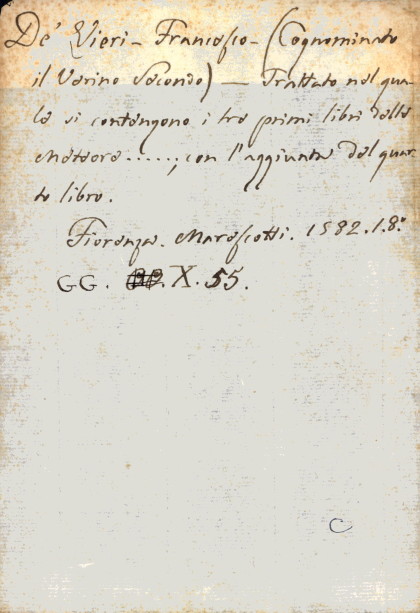 De' Vieri - Francesco - (Cognominato
il Verino Secondo) — Trattato nel qua-
le si contengono i tre primi libri delle
Meteore ......; con l'aggiunta del quar-
to libro.
Fiorenza. Marescotti. 1582. 1. 8.º
GG. X. 55.
C